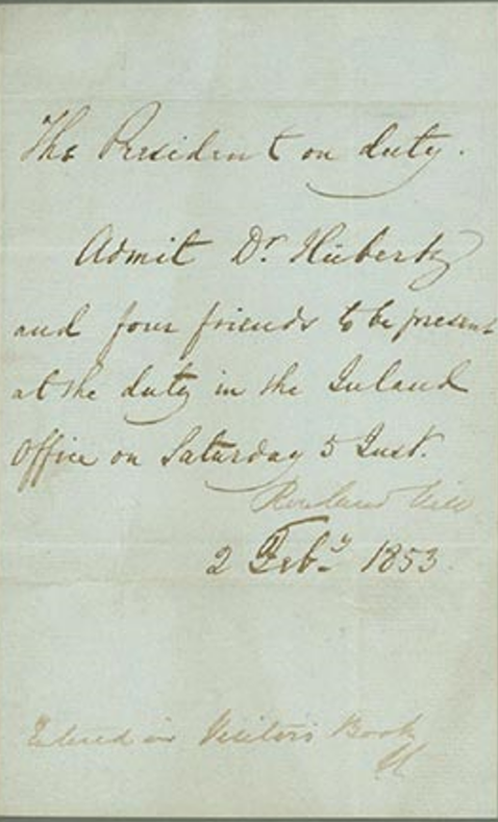 The President on duty.
Admit Dr. Hübertz
and four friends to be present
at the duty in the Inland
Office on Saturday 5 Inst.
Rowland Hill
2 Feby 1853.
Entered in Visitors Book